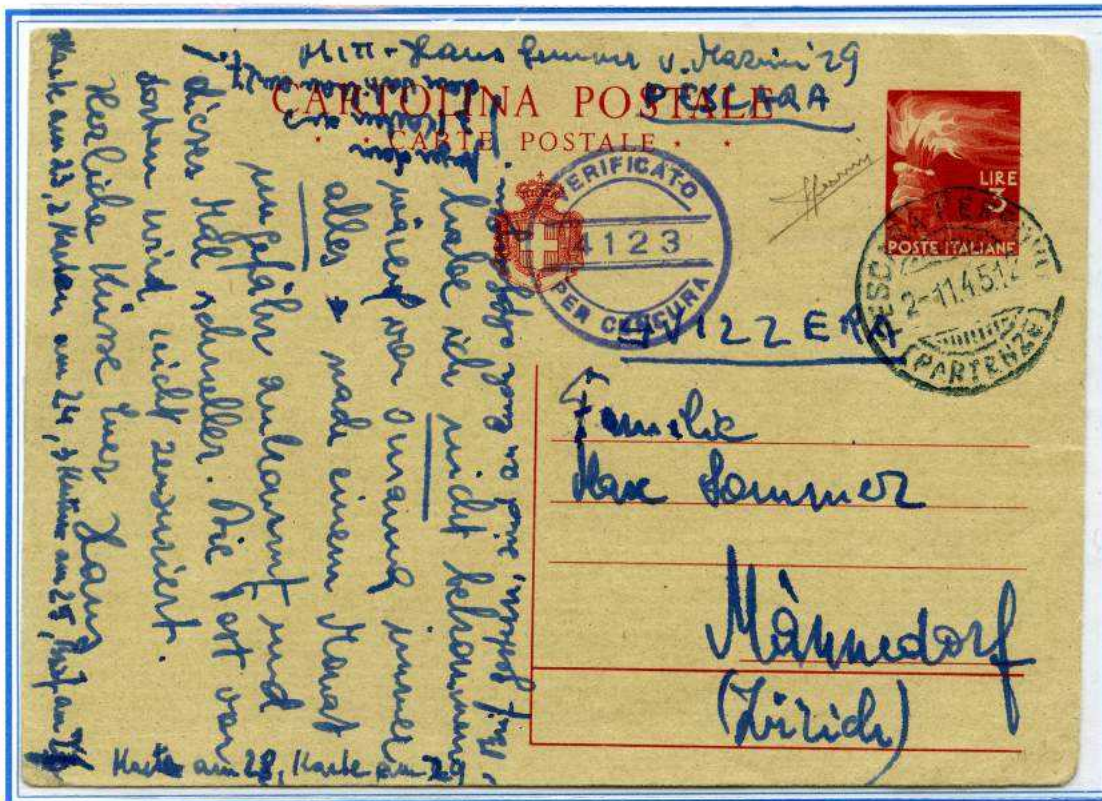 Mitt. Hans Sommer v. Mazzini 29
PESCARA
CARTOLINA POSTALE
CARTE POSTALE
LIRE
3
POSTE ITALIANE
VERIFICATO
4123
PER CENSURA
2-11.4.51.2
(PARTENZE)
SVIZZERA
Familie
Max Sommer
Männedorf
(Zürich)
habe ich nicht bekommen
während von Omama immer
alles nach einem Monat
ungefähr ankommt und
dieses Mal schneller. Die Post von
dorten wird nicht zensuriert.
Herzliche Küsse Euer Hans
Karte am 23, 2 Karten am 24, 3 Karten am 27,
Karte am 28, Karte am 29